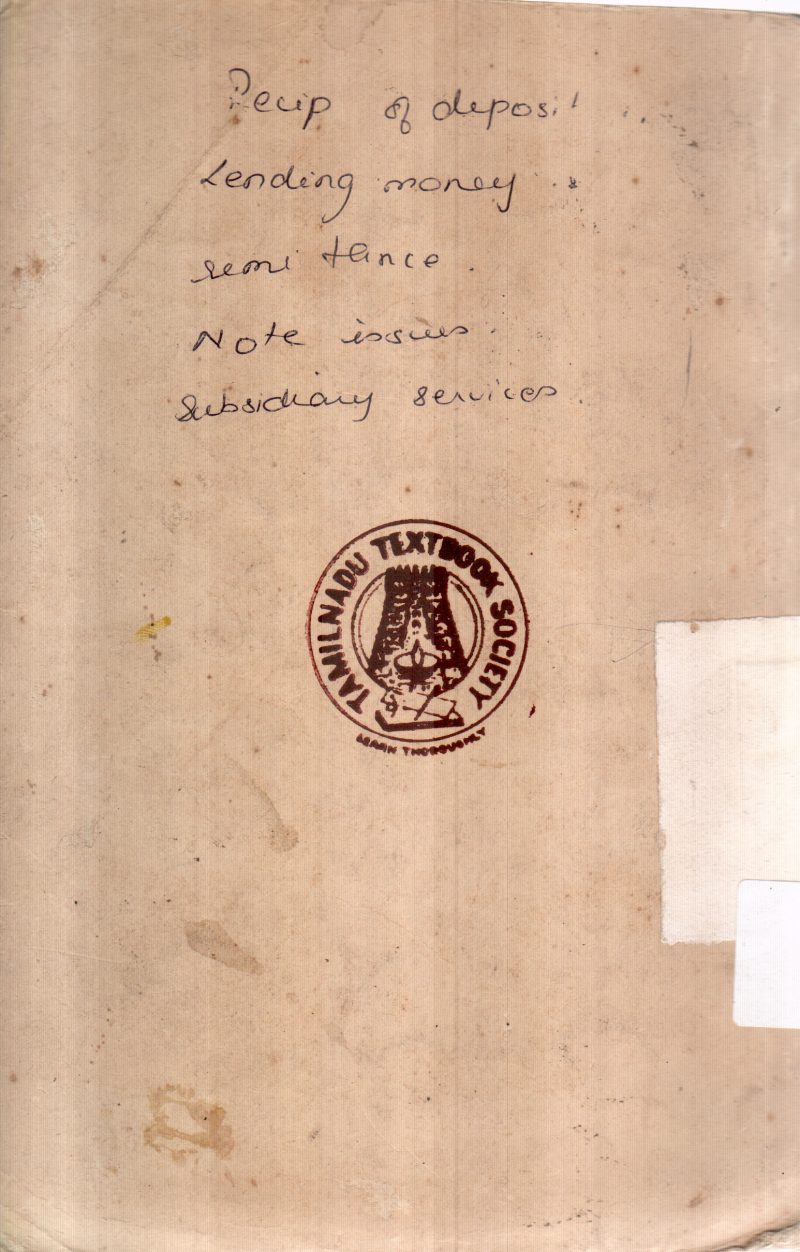 Recip of deposit
Lending money.
remittance.
Note issues.
Subsidiary services.
TAMILNADU TEXTBOOK SOCIETY
LEARN THOROUGHLY